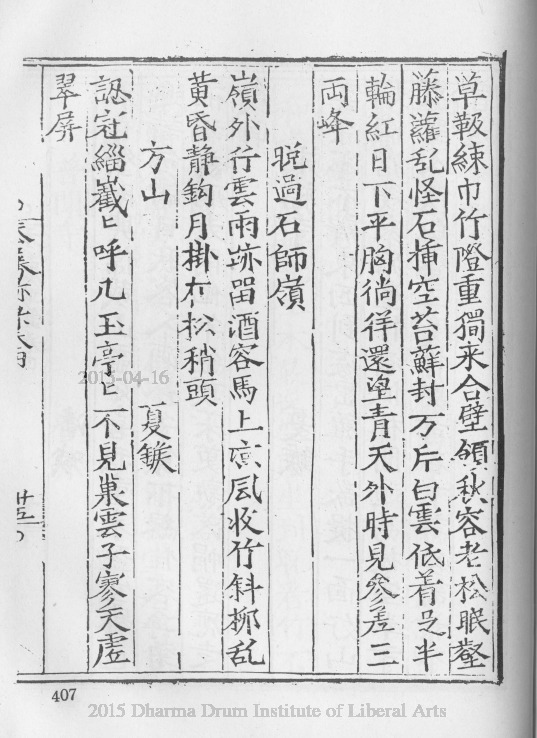 草靸練巾竹隥重獨来合壁領秋容老松眠壑
藤蘿乱怪石揷空苔蘚封万斤白雲低着足半
輪紅日下平胸徜徉還望青天外時見參差三
両峰
晩過石師嶺
嶺外行雲雨跡畱酒容馬上凉風收竹斜柳乱
黄昏静鈎月掛在松稍頭
方山 夏鍭
認冠緇巀〻呼九玉亭〻不見菓雲子寥天虛
翠屏
廿五
407
2015-04-16
2015 Dharma Drum Institute of Liberal Arts